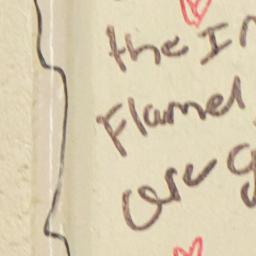 the In
Flamel
are g